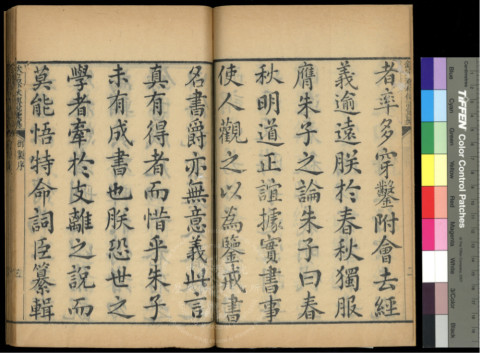 者率多穿鑿附會去經
義逾遠朕於春秋獨服
膺朱子之論朱子曰春
秋明道正誼據實書事
使人觀之以為鑒戒書
名書爵亦無意義此言
真有得者而惜乎朱子
未有成書也朕恐世之
學者牽於支離之說而
莫能悟特命詞臣纂輯
御製序
三
TIFFEN Color Control Patches
Blue
Cyan
Green
Yellow
Red
Magenta
White
3/Color
Black